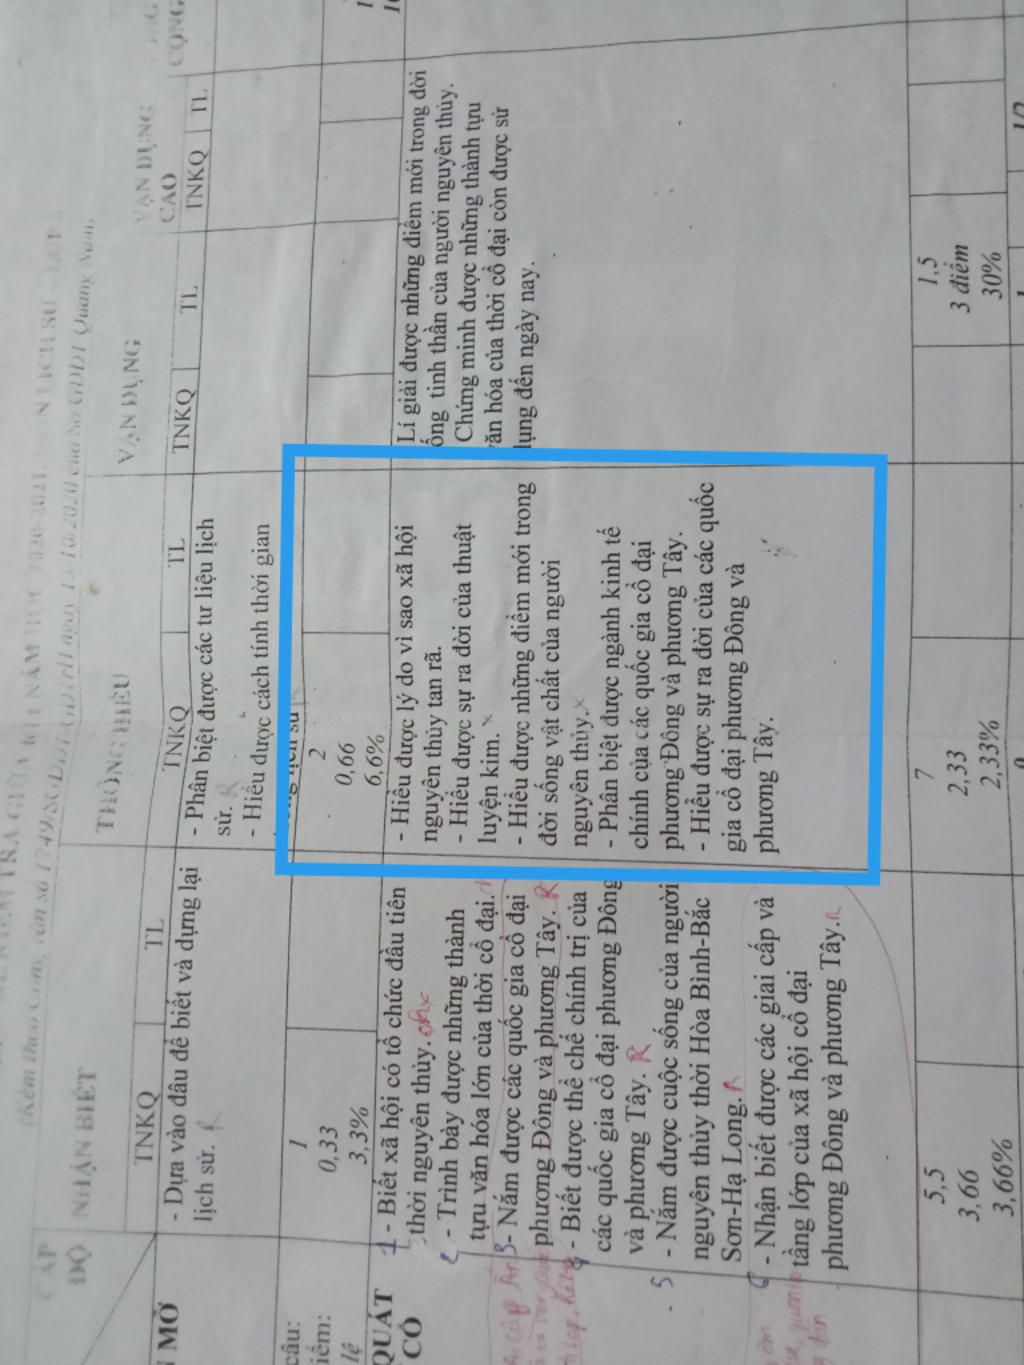 KIỂM TRA GIỮA KÌ I NĂM HỌC 2020-2021. MÔN LỊCH SỬ - LỚP
(Kèm theo Công văn số 1749/SGDĐT-GDTrH ngày 13/10/2020 của Sở GDĐT Quảng Nam)
CẤP
ĐỘ
NHẬN BIẾT
THÔNG HIỂU
VẬN DỤNG
VẬN DỤNG
CAO
CỘNG
TNKQ TL TNKQ TL TNKQ TL TNKQ TL
MỞ
- Dựa vào đâu để biết và dựng lại
lịch sử. R
- Phân biệt được các tư liệu lịch
sử. R
- Hiểu được cách tính thời gian
trong lịch sử
câu:
iểm:
lệ
1
0,33
3,3%
2
0,66
6,6%
QUÁT
CỔ
1 - Biết xã hội có tổ chức đầu tiên
thời nguyên thủy.
2 - Trình bày được những thành
tựu văn hóa lớn của thời cổ đại.
3 - Nắm được các quốc gia cổ đại
phương Đông và phương Tây. R
4 - Biết được thể chế chính trị của
các quốc gia cổ đại phương Đông
và phương Tây. R
5 - Nắm được cuộc sống của người
nguyên thủy thời Hòa Bình-Bắc
Sơn-Hạ Long. R
6 - Nhận biết được các giai cấp và
tầng lớp của xã hội cổ đại
phương Đông và phương Tây. R
- Hiểu được lý do vì sao xã hội
nguyên thủy tan rã.
- Hiểu được sự ra đời của thuật
luyện kim. x
- Hiểu được những điểm mới trong
đời sống vật chất của người
nguyên thủy. x
- Phân biệt được ngành kinh tế
chính của các quốc gia cổ đại
phương Đông và phương Tây.
- Hiểu được sự ra đời của các quốc
gia cổ đại phương Đông và
phương Tây.
Lí giải được những điểm mới trong đời
ống tinh thần của người nguyên thủy.
Chứng minh được những thành tựu
văn hóa của thời cổ đại còn được sử
lụng đến ngày nay.
5,5
3,66
3,66%
7
2,33
2,33%
1,5
3 điểm
30%
10